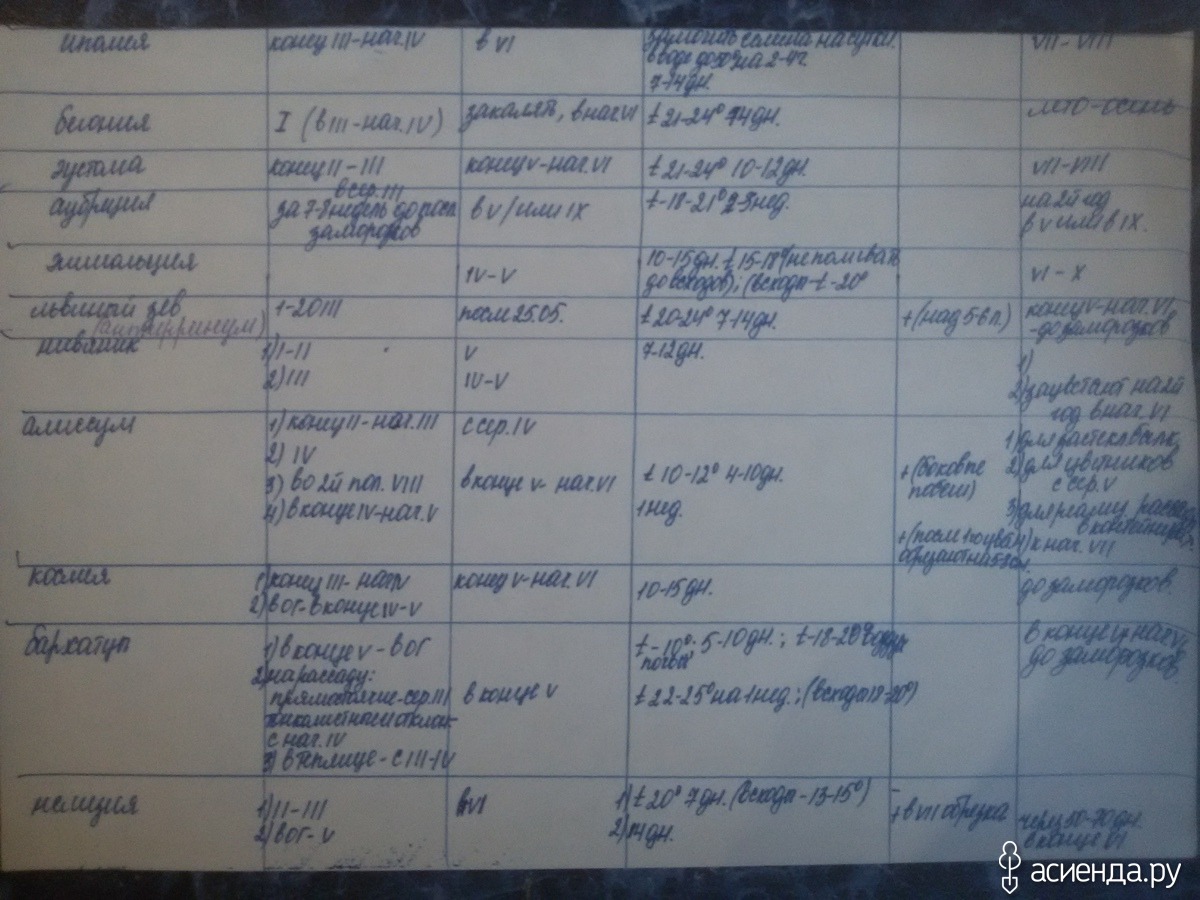 ипомея конец III-нач. IV в VI замочить семена на сутки VII-VIII
в воде до 30° на 2-4ч.
7-14 дн.
бегония I (в III-нач. IV) закалять, в нач. VI t 21-24° 14 дн. лето-осень
эустома конец II-III конец V-нач. VI t 21-24° 10-12 дн. VII-VIII
в сер. III
аубриция за 7-8 недель до посл. в V/или IX t-18-21° 2-3 нед. на 2й год
заморозков в V или в IX.
эшшольция IV-V 10-15 дн. t 15-18° (не поливать VI-X
до всходов); (всходы-t-20°
львиный зев 1-20 III после 25.05. t 20-24° 7-14 дн. +(над 5-6 л.) конец V-нач. VI
(антирринум) -до заморозков
нивяник 1) I-II V 7-12 дн. 1)
2) III IV-V 2) зацветают на 2й
год в нач. VI
алиссум 1) конец II-нач. III с сер. IV 1) для растекл. балк.
2) IV t 10-12° 4-10 дн. +(боковые 2) для цветников
3) во 2й пол. VIII в конце V-нач. VI побеги) с сер. V
4) в конце IV-нач. V 1 нед. 3) для
в контейнерах
+(после 1го цвет. 4) к нач. VII
обрезают на
космея 1) конец III-нач. IV конец V-нач. VI 10-15 дн. до заморозков
2) в ог-в конце IV-V
бархатцы 1) в конце V-в ог t-10°; 5-10 дн.; t-18-20° воздух в конце
почвы до заморозков
2) на рассаду: t 22-25° на 1 нед.; (всходы 18-20°)
прямостоячие-сер. III в конце V
тонколистные и отклон.-
с нач. IV
3) в теплице-с III-IV
немезия 1) II-III в VI 1) t 20° 7 дн. (всходы-13-15°) +в VII обрезка через 50-70 дн.
2) в ог-V 2) 14 дн. в конце VI
асиенда.ру